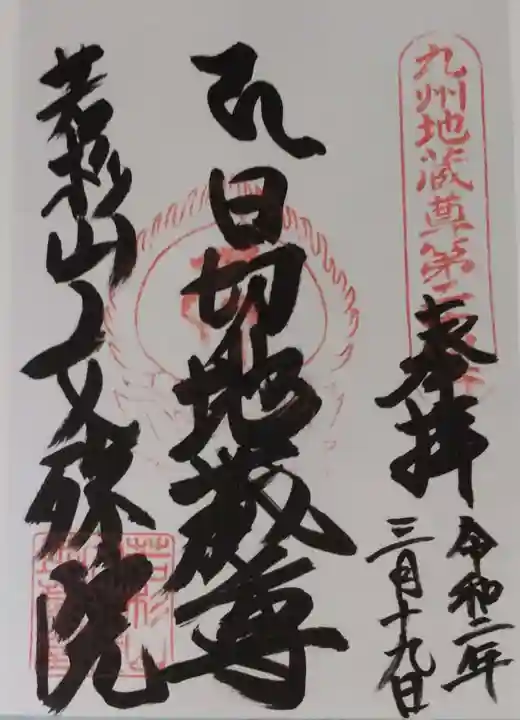 九州地蔵尊第二
奉拝
令和二年
三月十九日
日切地蔵尊
若杉山文殊院